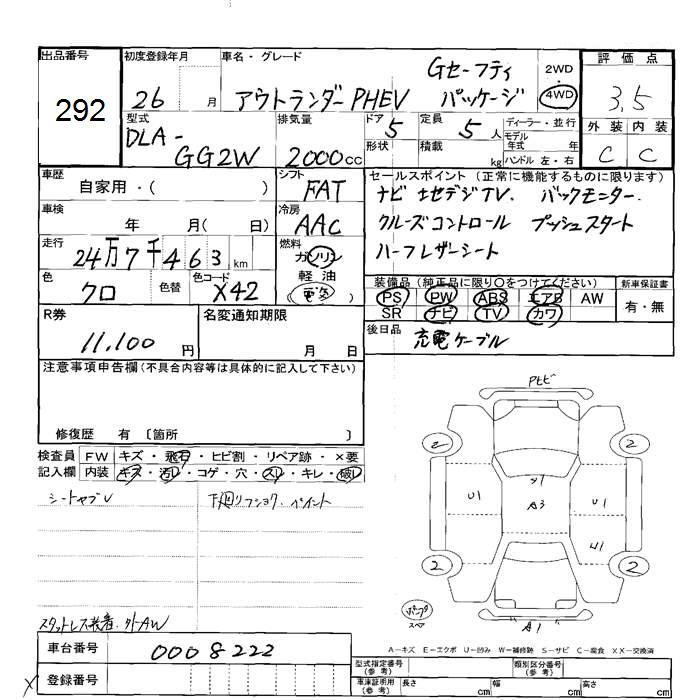 出品番号
292
初度登録年月
26 月
車名・グレード
アウトランダーPHEV
Gセーフティ
パッケージ
2WD
・
4WD
評価点
3.5
外装 内装
C C
型式
DLA-
GG2W
排気量
2000cc
ドア 5
形状
定員 5 人
積載 kg
ディーラー・並行
モデル
年式 年
ハンドル 左・右
車歴
自家用・( )
シフト
FAT
セールスポイント(正常に機能するものに限ります)
ナビ 地デジTV. バックモニター.
クルーズコントロール プッシュスタート
ハーフレザーシート
車検
年 月( 日)
冷房
AAC
走行
24万7千463km
燃料
ガソリン
軽油
電気
色
クロ
色替
色コード
X42
装備品(純正品に限り○をつけてください)
PS PW ABS エアB AW
SR ナビ TV カワ
新車保証書
有・無
R券
11,100 円
名変通知期限
月 日
後日品
充電ケーブル
注意事項申告欄(不具合内容等は具体的に記入して下さい)
修復歴 有 〔箇所 〕
検査員
記入欄
FW キズ・飛石・ヒビ割・リペア跡・×要
内装 キズ・汚レ・コゲ・穴・スレ・キレ・破レ
シートヤブレ
下廻りフショク. ペイント
スタットレス装着. 外AW
PLビ
2 2
Y1
U1 A3 U1
U1
2 2
パンク
スペア
A1
A-キズ E-エクボ U-凹み W-補修跡 S-サビ C-腐食 XX-交換済
車台番号
0008222
登録番号
X
型式指定番号
(参考)
類別区分番号
(参考)
車庫証明用
(参考)
長さ cm 幅 cm 高さ cm